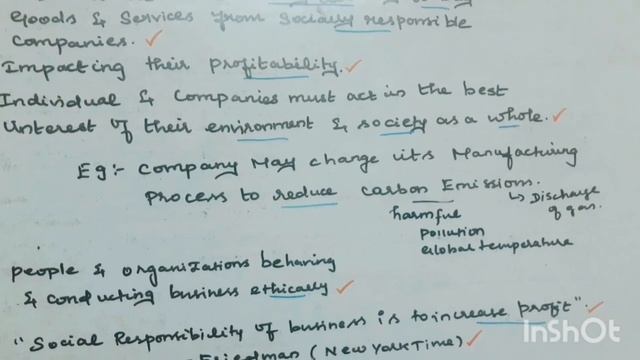 Goods & Services from Socially responsible
Companies. ✓
Impacting their profitability. ✓
Individual & Companies must act in the best
interest of their environment & society as a whole. ✓
Eg:- Company May change its Manufacturing
Process to reduce carbon Emissions.
harmful
pollution
Global temperature
↳ Discharge
of gas.
people & organizations behaving
& conducting business ethically ✓
"Social Responsibility of business is to increase profit" ✓
Friedman (New York Time) ✓
InShOt